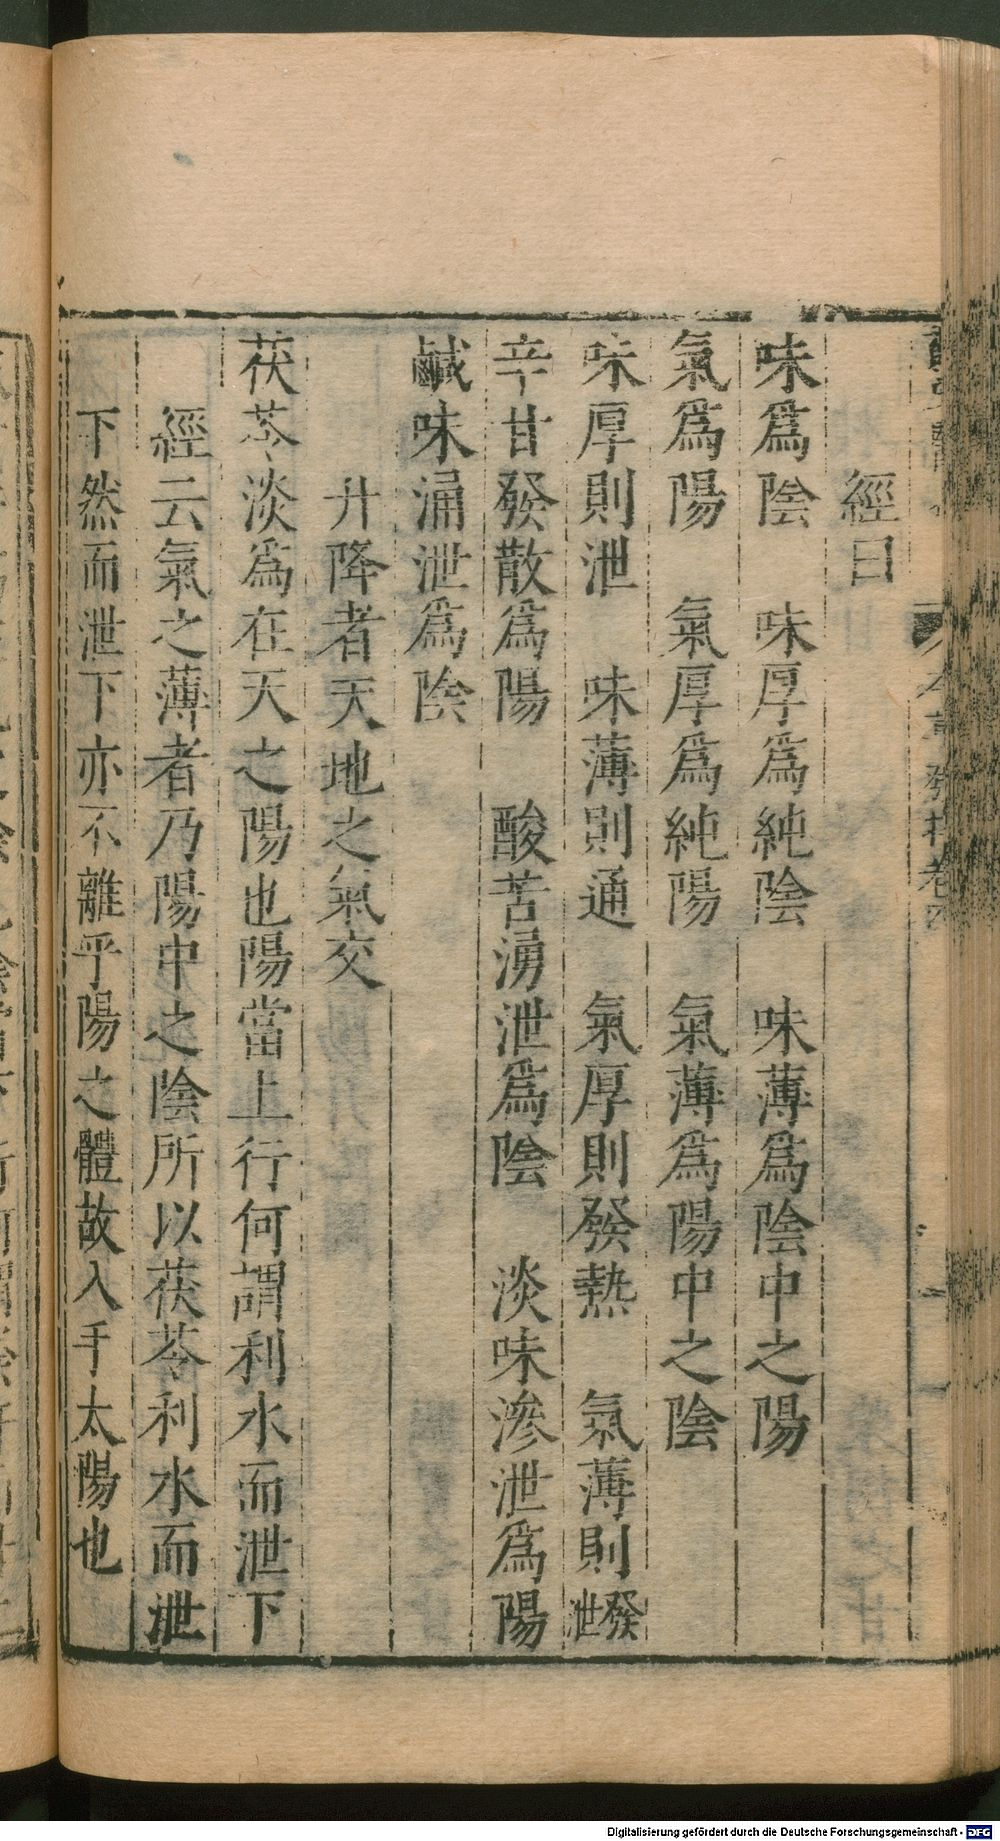 經曰
味爲陰　味厚爲純陰　味薄爲陰中之陽
氣爲陽　氣厚爲純陽　氣薄爲陽中之陰
味厚則泄　味薄則通　氣厚則發熱　氣薄則發泄
辛甘發散爲陽　酸苦湧泄爲陰　淡味滲泄爲陽
鹹味涌泄爲陰
升降者天地之氣交
茯苓淡爲在天之陽也陽當上行何謂利水而泄下
經云氣之薄者乃陽中之陰所以茯苓利水而泄
下然而泄下亦不離乎陽之體故入手太陽也
Digitalisierung gefördert durch die Deutsche Forschungsgemeinschaft - DFG